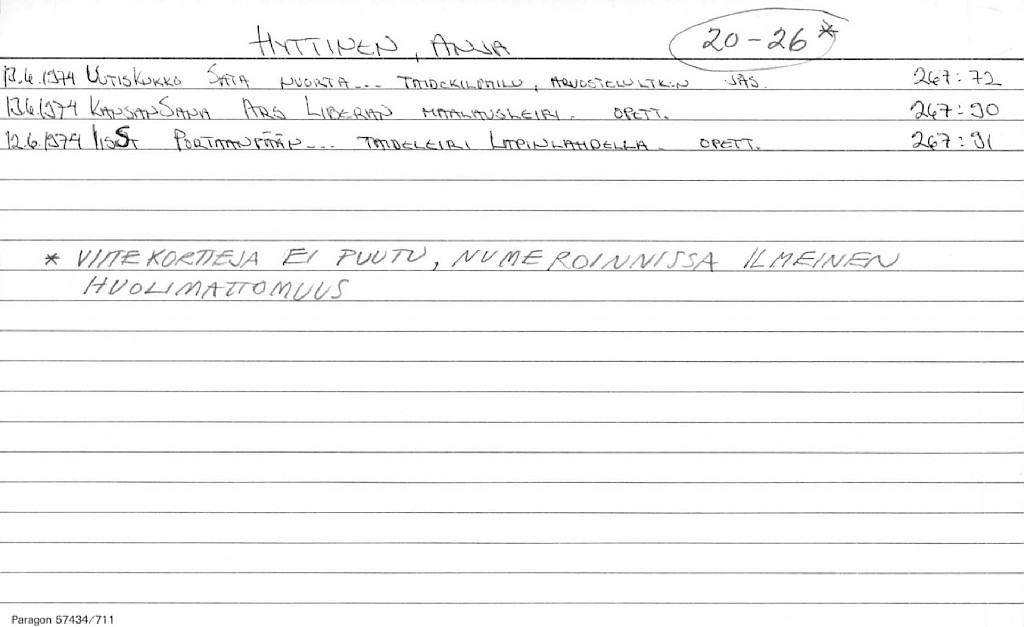 HYTTINEN, ANJA 20-26*
13.6.1974 UUTISKUKKO SATA NUORTA... TAIDEKILPAILU, ARVOSTELULTK:N JÄS. 267:72
13.6.1974 KANSAN SANA ARS LIBERAN MAALAUSLEIRI. OPETT. 267:90
12.6.1974 IISS PORTAANPÄÄN... TAIDELEIRI LAPINLAHDELLA. OPETT. 267:91
* VIITEKORTTEJA EI PUUTU, NUMEROINNISSA ILMEINEN
HUOLIMATTOMUUS
Paragon 57434/711